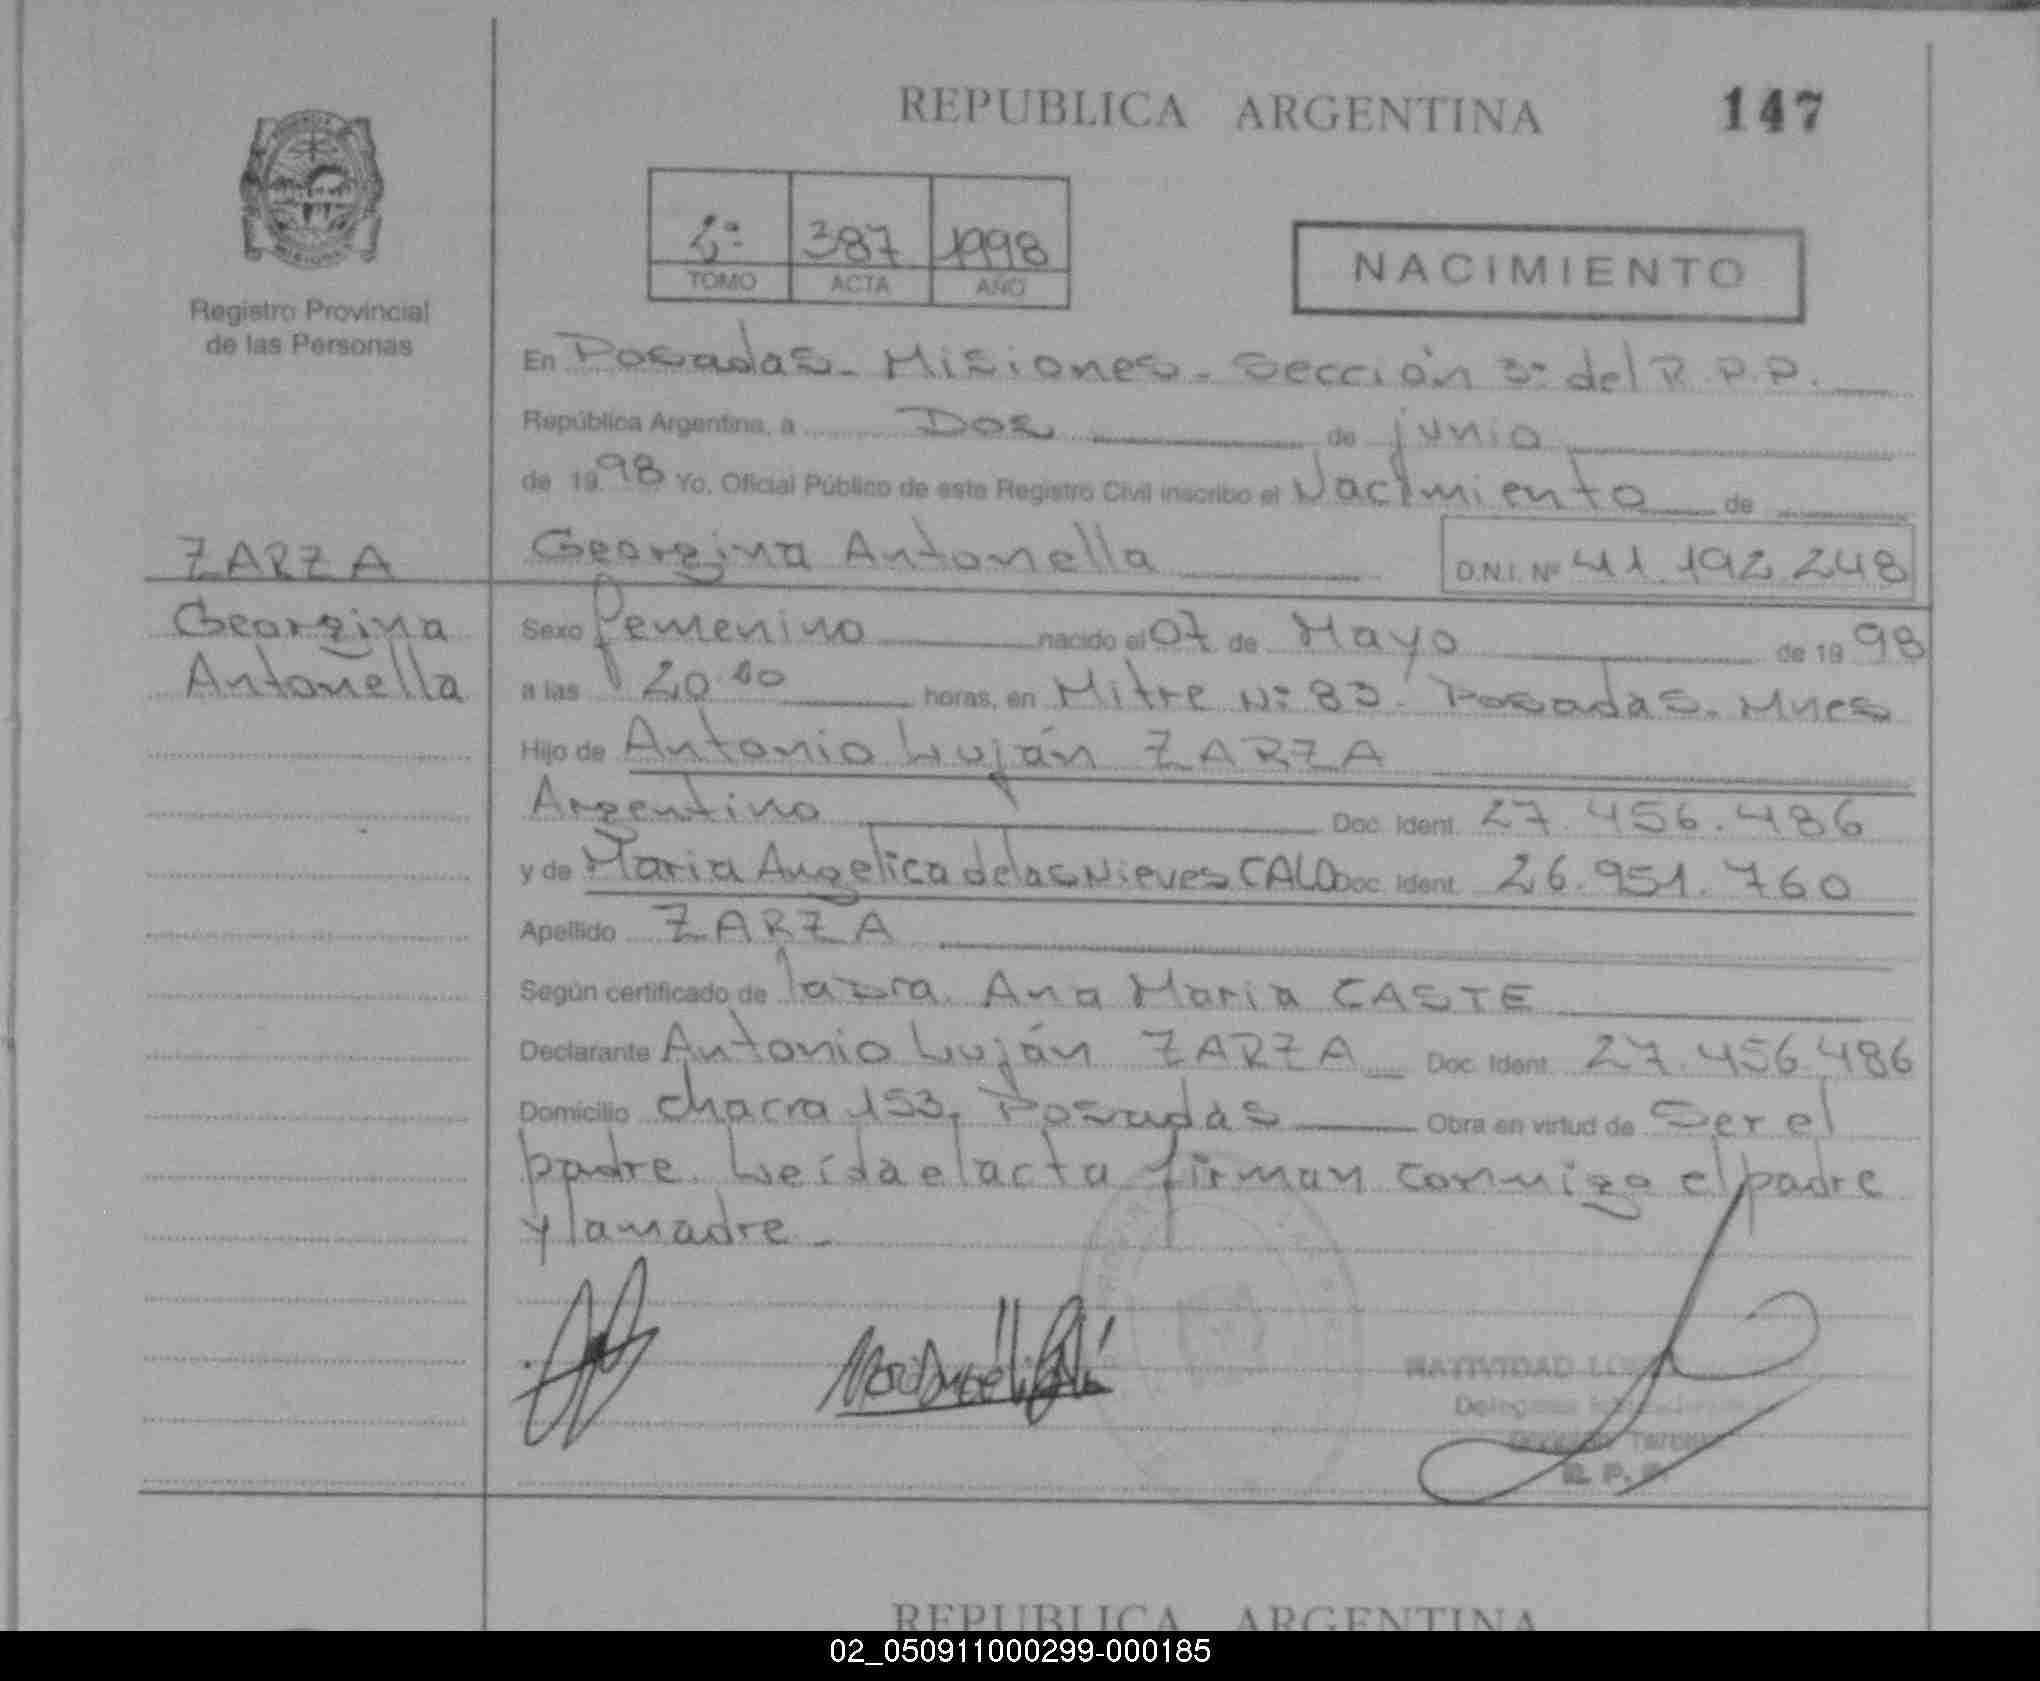 REPUBLICA ARGENTINA 147
2º 387 1998
TOMO ACTA AÑO
NACIMIENTO
Registro Provincial
de las Personas
En Posadas - Misiones - Sección 3º del R.P.P.
República Argentina, a Dos de junio
de 1998 Yo, Oficial Público de este Registro Civil inscribo el Nacimiento de
ZARZA
Georgina Antonella
Georgina Antonella D.N.I. Nº 41.192.248
Sexo femenino nacido el 07 de Mayo de 1998
a las 20.00 horas, en Mitre Nº 83. Posadas. Mnes
Hijo de Antonio Luján ZARZA
Argentino Doc. Ident. 27.456.486
y de Maria Angelica de las Nieves CALO Doc. Ident. 26.951.760
Apellido ZARZA
Según certificado de la Dra. Ana Maria CASTE
Declarante Antonio Luján ZARZA Doc. Ident. 27.456.486
Domicilio chacra 153, Posadas Obra en virtud de Ser el
padre. Leída el acta firman conmigo el padre
y la madre.-
NATIVIDAD
R. P. P.
REPUBLICA ARGENTINA
02_050911000299-000185